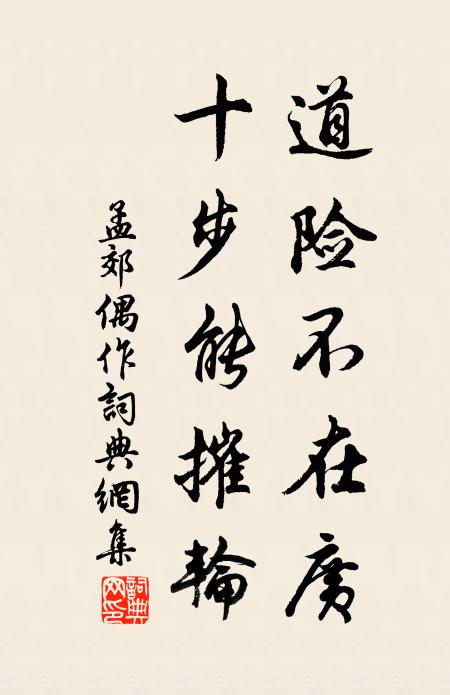 道险不在廣
十步能摧輪
孟郊偶作詞典網集
詞典網印